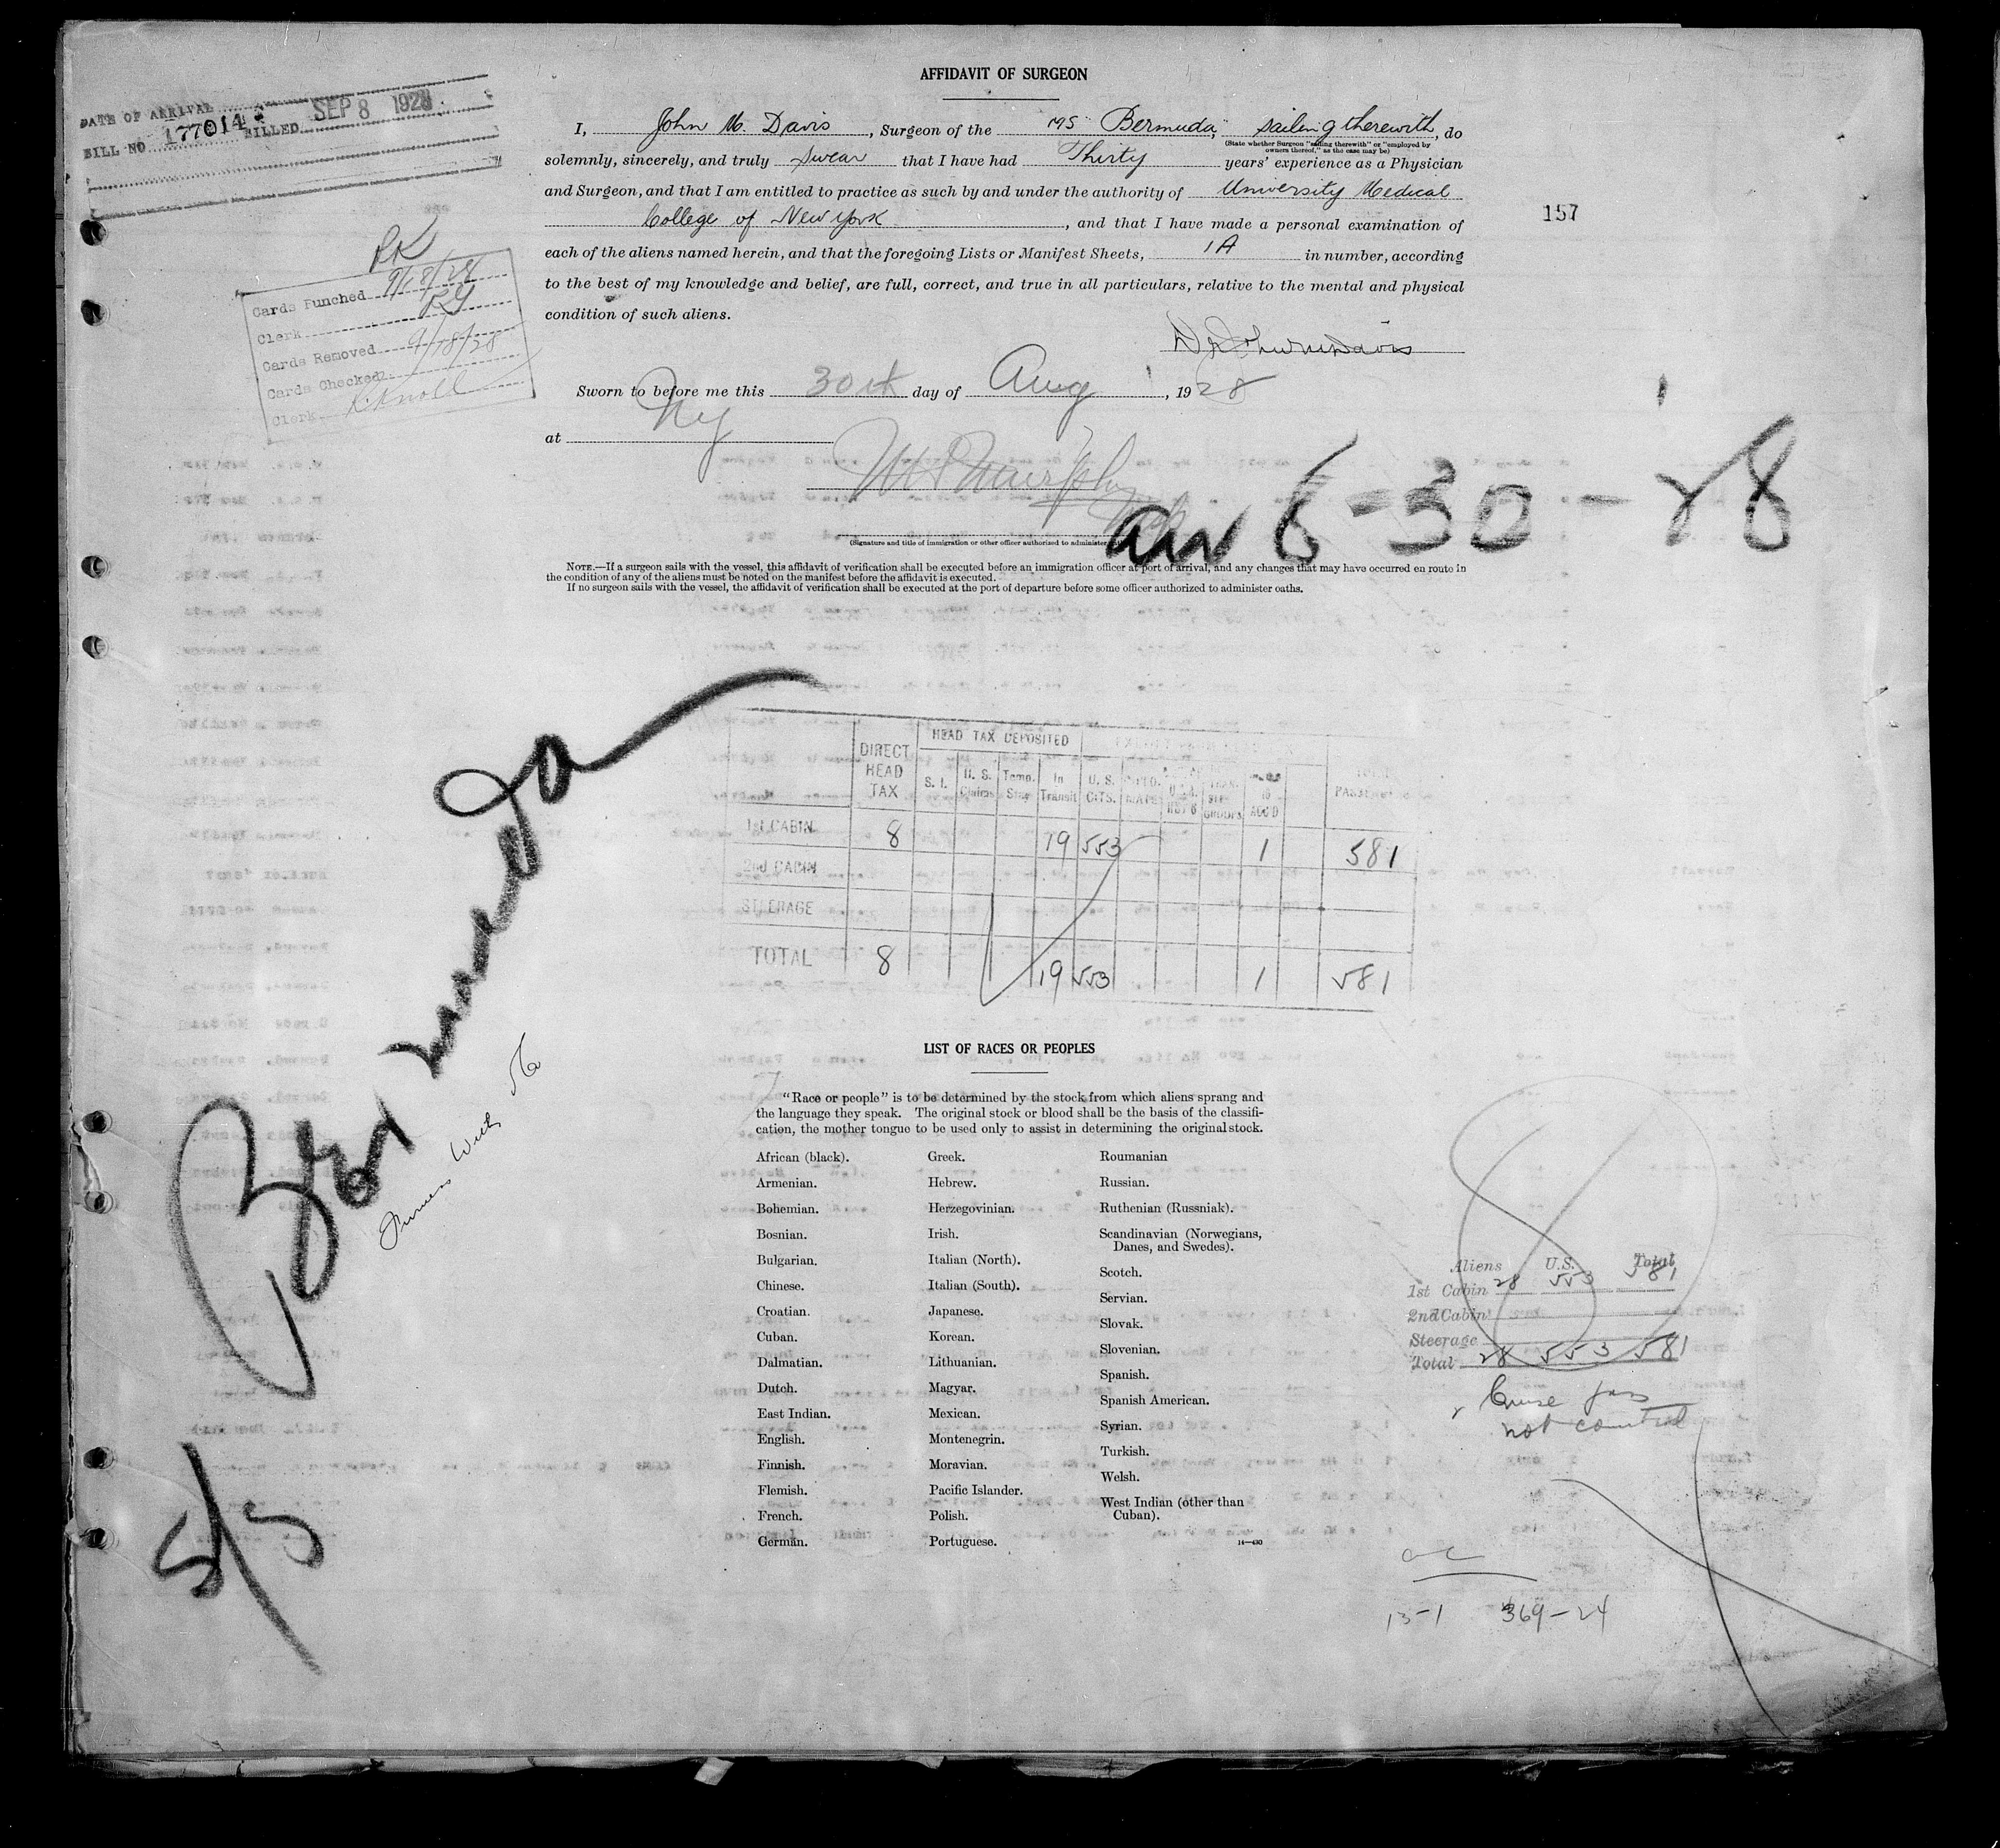 AFFIDAVIT OF SURGEON
DATE OF ARRIVAL
BILL NO. 177014 BILLED SEP 8 1928
I, John M. Davis, Surgeon of the MS "Bermuda," sailing therewith, do
(State whether Surgeon "sailing therewith" or "employed by
owners thereof," as the case may be)
solemnly, sincerely, and truly swear that I have had Thirty years' experience as a Physician
and Surgeon, and that I am entitled to practice as such by and under the authority of University Medical
College of New York, and that I have made a personal examination of
157
each of the aliens named herein, and that the foregoing Lists or Manifest Sheets, 1A in number, according
to the best of my knowledge and belief, are full, correct, and true in all particulars, relative to the mental and physical
condition of such aliens.
RK
Cards Punched 9/18/28
Clerk RG
Cards Removed 9/18/28
Cards Checked
Clerk K. Knoll
Sworn to before me this 30th day of Aug, 1928
at NY
(Signature and title of immigration or other officer authorized to administer
8-30-28
NOTE.—If a surgeon sails with the vessel, this affidavit of verification shall be executed before an immigration officer at port of arrival, and any changes that may have occurred en route in
the condition of any of the aliens must be noted on the manifest before the affidavit is executed.
If no surgeon sails with the vessel, the affidavit of verification shall be executed at the port of departure before some officer authorized to administer oaths.
Bermuda
Furness With
S/S
HEAD TAX DEPOSITED
DIRECT HEAD TAX S. I. U. S. Temp. Stay In Transit U. S. CITS.
1st CABIN 8 19 553 1 581
2nd CABIN
STEERAGE
TOTAL 8 19 553 1 581
LIST OF RACES OR PEOPLES
"Race or people" is to be determined by the stock from which aliens sprang and
the language they speak. The original stock or blood shall be the basis of the classifi-
cation, the mother tongue to be used only to assist in determining the original stock.
African (black).
Armenian.
Bohemian.
Bosnian.
Bulgarian.
Chinese.
Croatian.
Cuban.
Dalmatian.
Dutch.
East Indian.
English.
Finnish.
Flemish.
French.
German.
Greek.
Hebrew.
Herzegovinian.
Irish.
Italian (North).
Italian (South).
Japanese.
Korean.
Lithuanian.
Magyar.
Mexican.
Montenegrin.
Moravian.
Pacific Islander.
Polish.
Portuguese.
Roumanian
Russian.
Ruthenian (Russniak).
Scandinavian (Norwegians,
Danes, and Swedes).
Scotch.
Servian.
Slovak.
Slovenian.
Spanish.
Spanish American.
Syrian.
Turkish.
Welsh.
West Indian (other than
Cuban).
14—430
Aliens U.S. Total
1st Cabin 28 553 581
2nd Cabin
Steerage
Total 28 553 581
Cruise pass
not
13-1 369-24